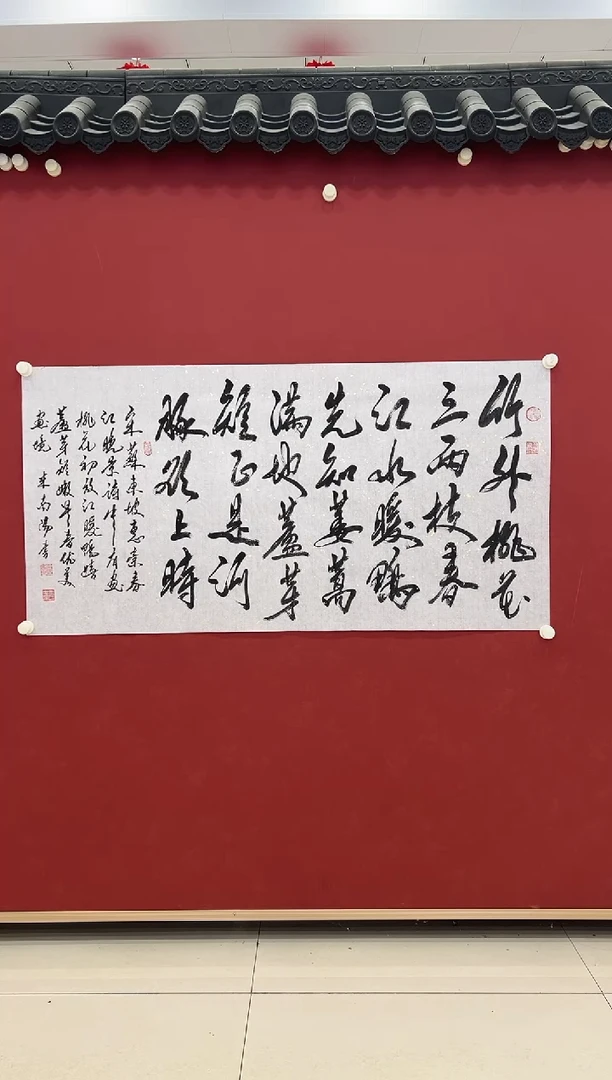 竹外桃花
三两枝春
江水暖鸭
先知蒌蒿
满地蘆芽
短正是河
豚欲上時
宋蘇東坡惠崇春
江晚景诗中有画
桃花初放江暖鸭嬉
蘆芽 早春优美
画境